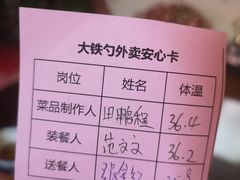 大铁勺外卖安心卡
岗位 姓名 体温
菜品制作人 田鹏程 36.4
装餐人 范文文 36.2
送餐人